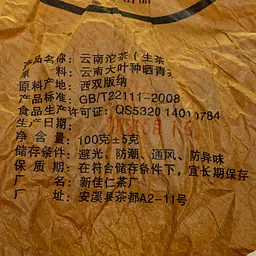 产品名称：云南沱茶（生茶
原　料：云南大叶种晒青
原料产地：西双版纳
产品标准：GB/T22111-2008
食品生产许可证：QS5320
生产日期：
净 含 量：100克±5克
储存条件：避光、防潮、通风、防异味
保 质 期：在符合储存条件下，宜长期保存
厂　　名：新佳仁茶厂
厂　　址：安溪县茶都A2-11号